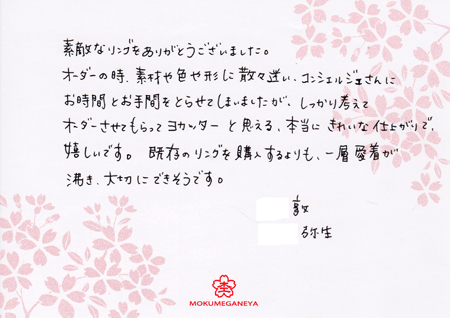 素敵なリングをありがとうございました。
オーダーの時、素材や色や形に散々迷い、コンシェルジェさんに
お時間とお手間をとらせてしまいましたが、しっかり考えて
オーダーさせてもらってヨカッターと思える、本当にきれいな仕上がりで、
嬉しいです。既存のリングを購入するよりも、一層愛着が
沸き、大切にできそうです。
敦
弥生
MOKUMEGANEYA